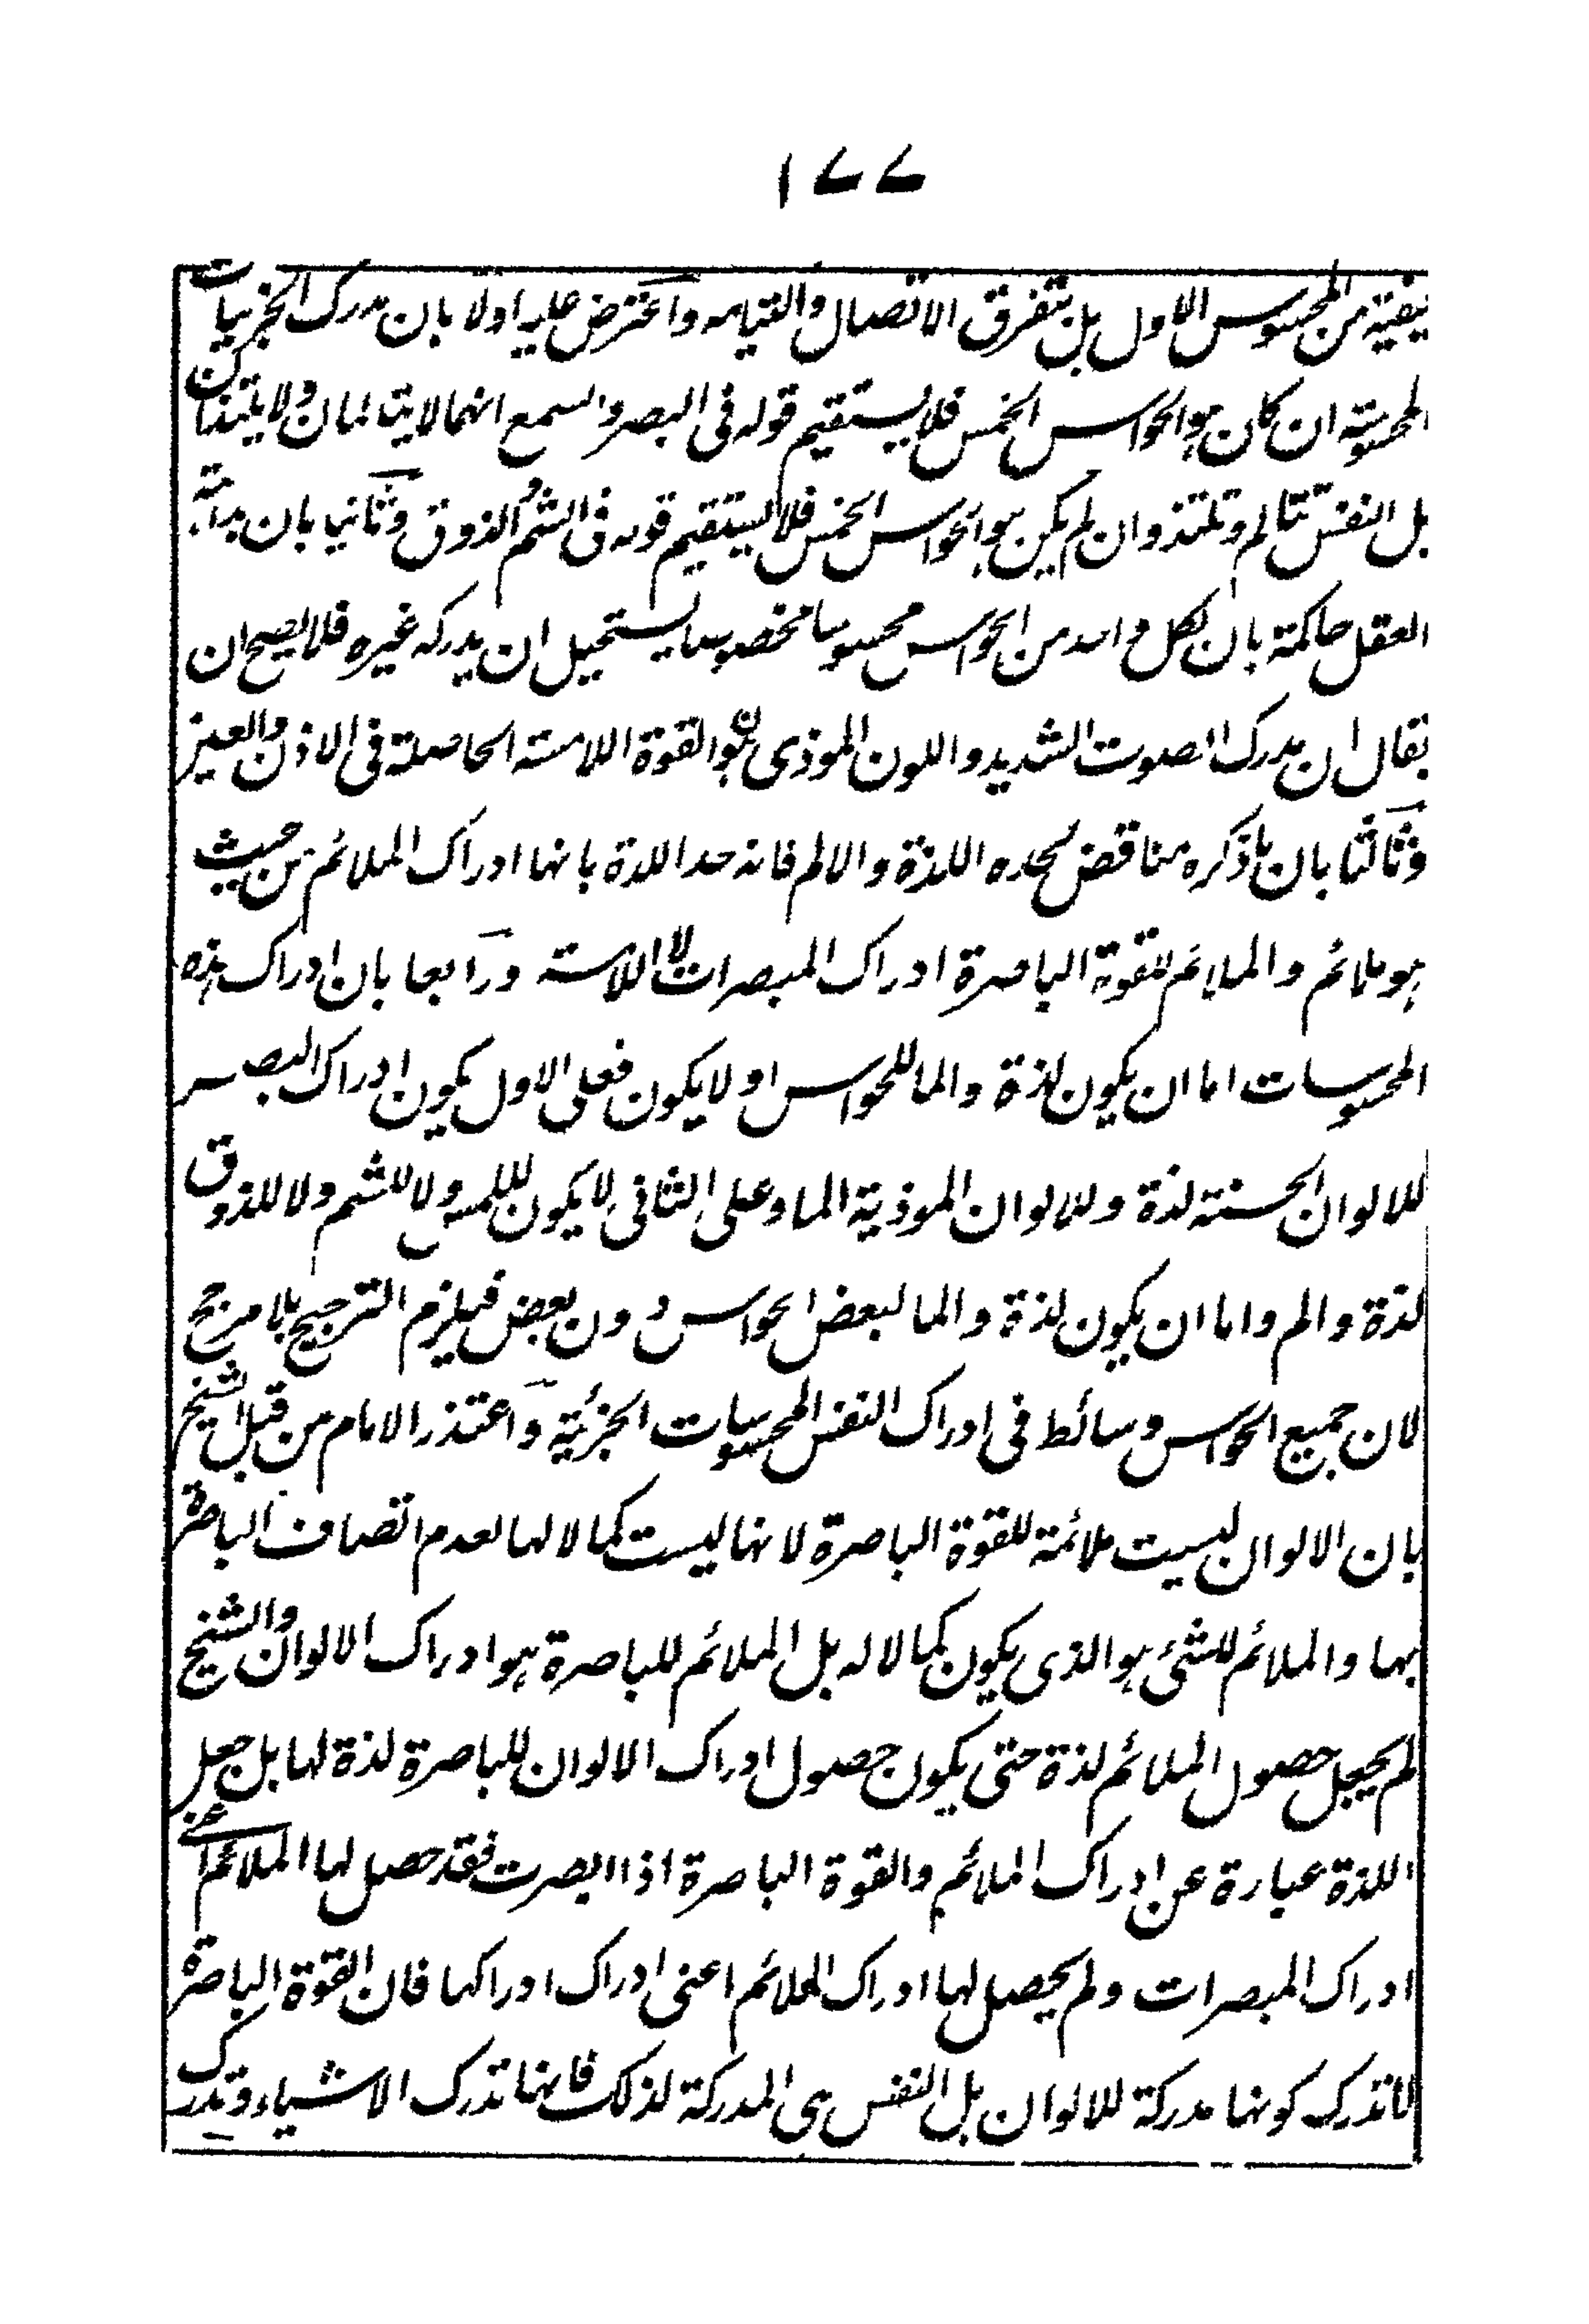 ١٧٧
يفية من المحسوس الاول بل بتفرق الاتصال والتيامه واعترض عليه اولا بان مدرك الجزئيات
المحسوسة ان كان هو الحواس الخمس فلا يستقيم قوله فى البصر والسمع انهما لا يتالمان ولا يلتذان لكن
بل النفس تتالم وتلتذ وان لم يكن هو الحواس الخمس فلا يستقيم قوله فى الشم والذوق وثانيا بان بداهة
العقل حاكمة بان لكل واحد من الحواس محسوسا مخصوصا يستحيل ان يدركه غيره فلا يصح ان
يقال ان مدرك الصوت الشديد واللون الموذى هو القوة اللامسة الحاصلة فى الاذن والعين
وثالثا بان ما ذكره مناقض لحده اللذة والالم فانه حد اللذة بانها ادراك الملائم من حيث
هو ملائم والملائم للقوة الباصرة ادراك المبصرات لا اللامسة ورابعا بان ادراك هذه
المحسوسات اما ان يكون لذة والما للحواس او لا يكون فعلى الاول يكون ادراك البصر
للالوان الحسنة لذة وللالوان الموذية الما وعلى الثانى لا يكون للمس ولا للشم ولا للذوق
لذة والم واما ان يكون لذة والما لبعض الحواس دون بعض فيلزم الترجيح بلا مرجح
لان جميع الحواس وسائط فى ادراك النفس المحسوسات الجزئية واعتذر الامام من قبل الشيخ
بان الالوان ليست ملائمة للقوة الباصرة لانها ليست كمالا لها لعدم اتصاف الباصرة
بها والملائم للشئ هو الذى يكون كمالا له بل الملائم للباصرة هو ادراك الالوان والشيخ
لم يجعل حصول الملائم لذة حتى يكون حصول ادراك الالوان للباصرة لذة لها بل جعل
اللذة عبارة عن ادراك الملائم والقوة الباصرة اذا ابصرت فقد حصل لها الملائم اعنى
ادراك المبصرات ولم يحصل لها ادراك الملائم اعنى ادراك ادراكها فان القوة الباصرة
لا تدرك كونها مدركة للالوان بل النفس هى المدركة لذلك فانها تدرك الاشياء وتدرك